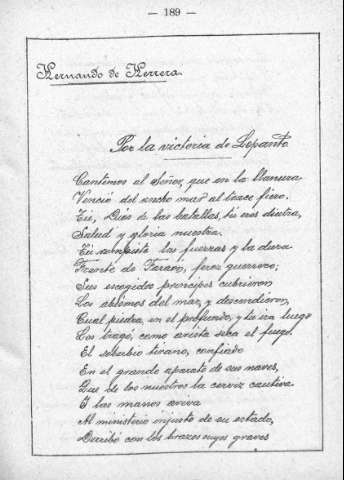 — 189 —
Hernando de Herrera.
Por la victoria de Lepanto
Cantemos al Señor, que en la llanura
Venció del ancho mar al trace fiero.
Tú, Dios de las batallas, tú eres diestra,
Salud y gloria nuestra.
Tú rompiste las fuerzas y la dura
Frente de Faraon, feroz guerrero;
Sus escogidos príncipes cubrieron
Los abismos del mar, y descendieron,
Cual piedra, en el profundo, y tu ira luego
Los tragó, como arista seca el fuego.
El soberbio tirano, confiado
En el grande aparato de sus naves,
Que de los nuestros la cerviz cautiva
Y las manos aviva
Al ministerio injusto de su estado,
Derribó con los brazos suyos graves